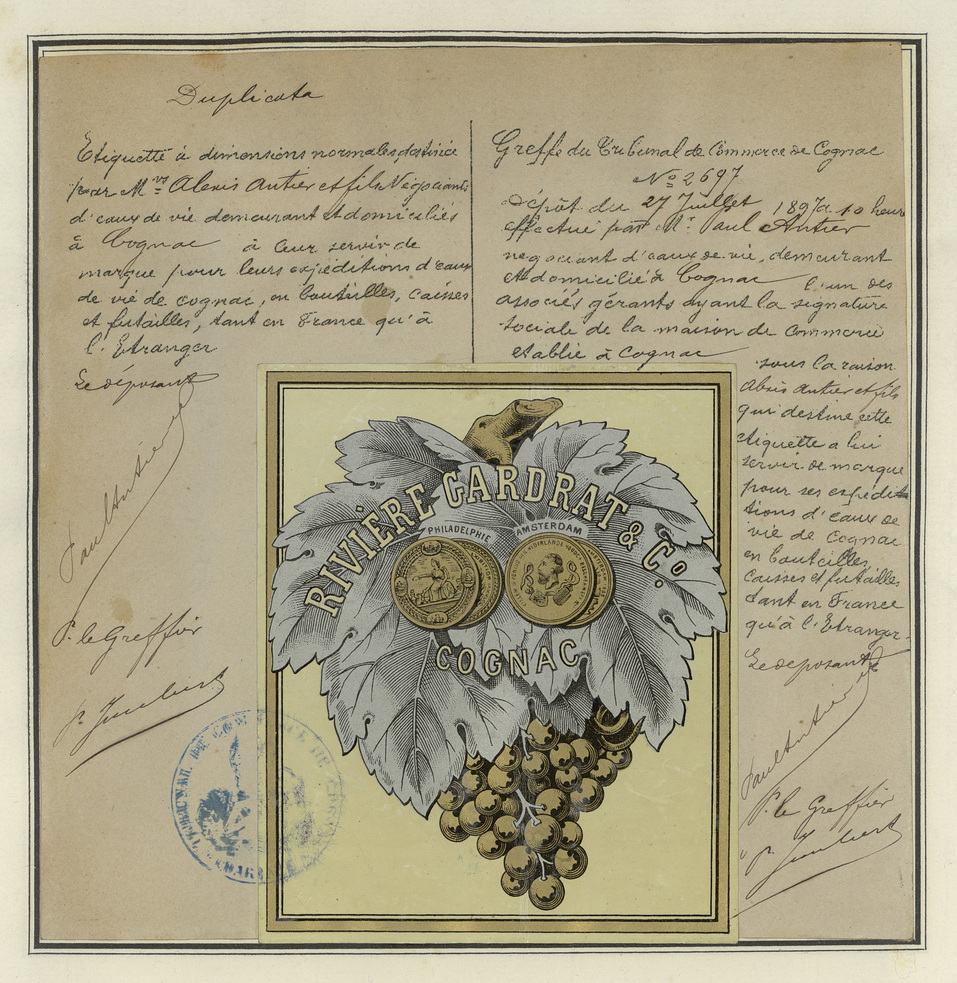 Duplicata
Etiquette à dimensions normales destinée
par Mrs Alexis Antier et fils Négociants
d'eaux de vie demeurant et domiciliés
à Cognac à leur servir de
marque pour leurs expéditions d'eaux
de vie de cognac, en bouteilles, caisses
et futailles, tant en France qu'à
l'Etranger
Le déposant
Paul Antier
P. le Greffier
P. Joubert
Greffe du Tribunal de Commerce de Cognac
No 2697
dépôt du 27 Juillet 1897 à 10 heures
effectué par Mr Paul Antier
negociant d'eaux de vie, demeurant
et domicilié à Cognac l'un des
associés gérants ayant la signature
sociale de la maison de commerce
etablie à Cognac
sous la raison
Alexis Antier et fils
qui destine cette
étiquette a lui
servir de marque
pour ses expédi-
tions d'eaux de
vie de Cognac
en bouteilles
caisses et futailles
tant en France
qu'à l'Etranger.
Le deposant
Paul Antier
P. le Greffier
P. Joubert
RIVIÈRE GARDRAT & Co
PHILADELPHIE AMSTERDAM
COGNAC
TRIBUNAL DE COMMERCE DE